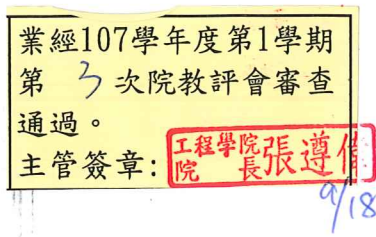 業經107學年度第1學期
第 3 次院教評會審查
通過。
主管簽章: 工程學院院長張遵偉
9/18